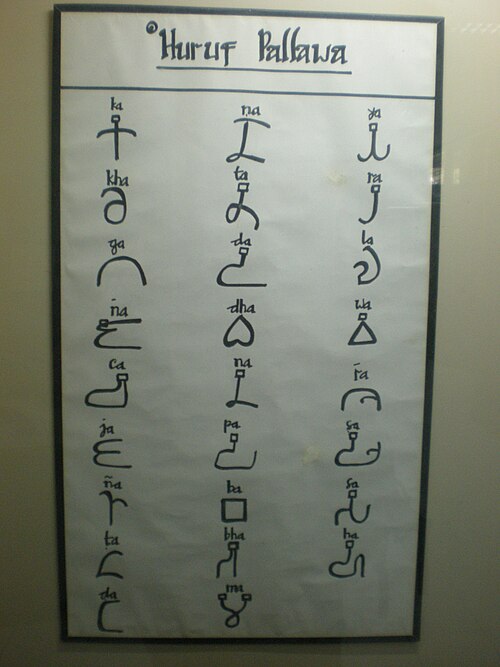 Huruf Pallawa
ka
kha
ga
ṅa
ca
ja
ña
ta
da
na
ta
da
dha
na
pa
ba
bha
ma
ya
ra
la
wa
ṛa
sa
sa
ha